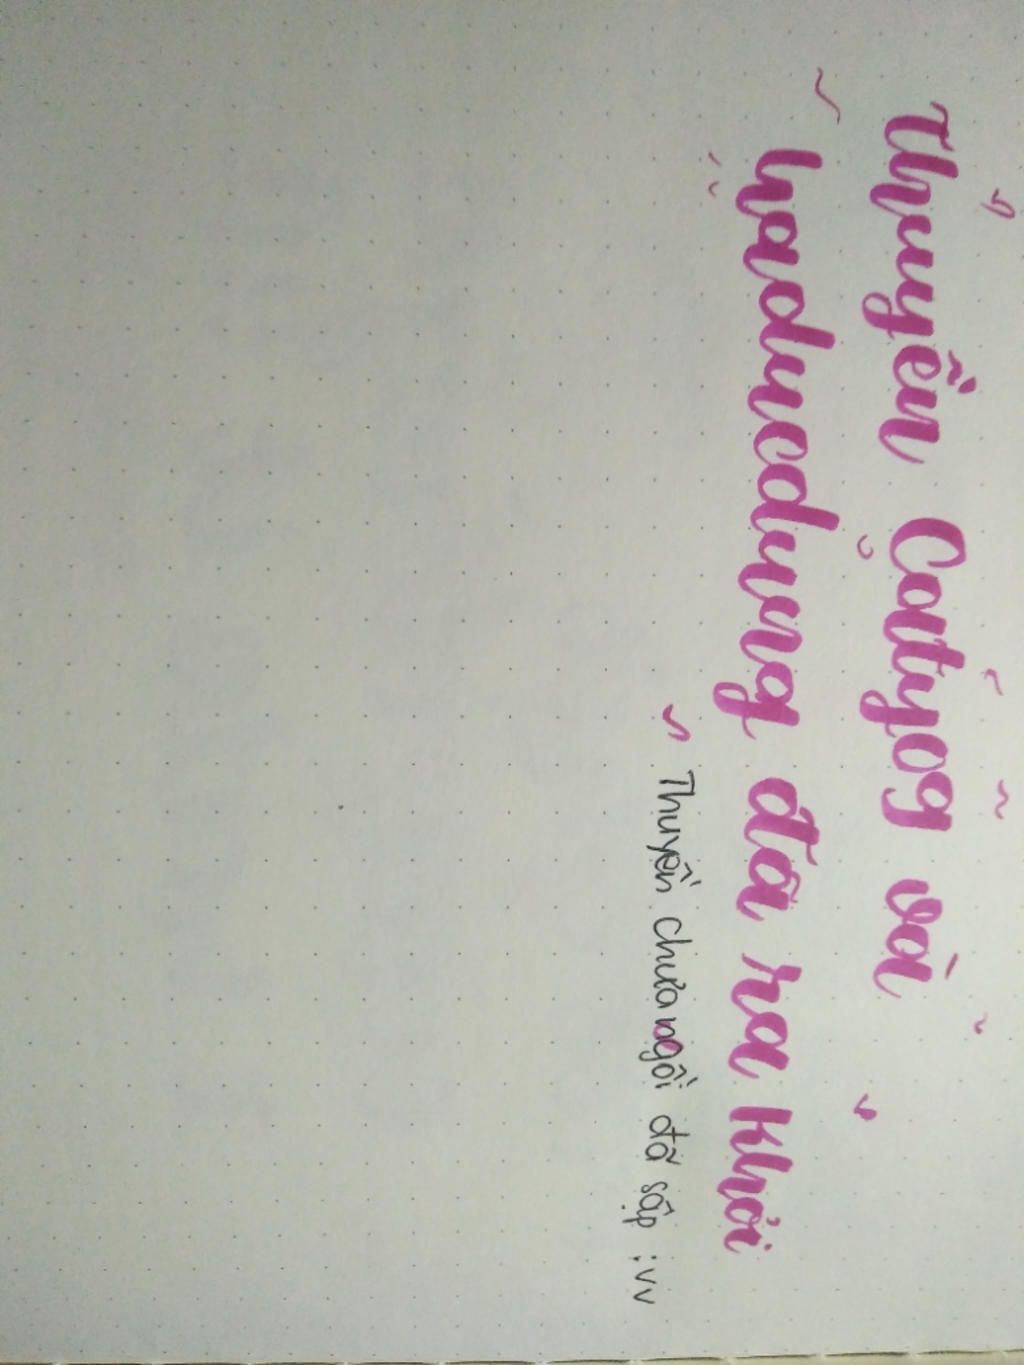 Thuyền Catyog và
haducdung đã ra khỏi
Thuyền chưa ngồi đã sập :vv